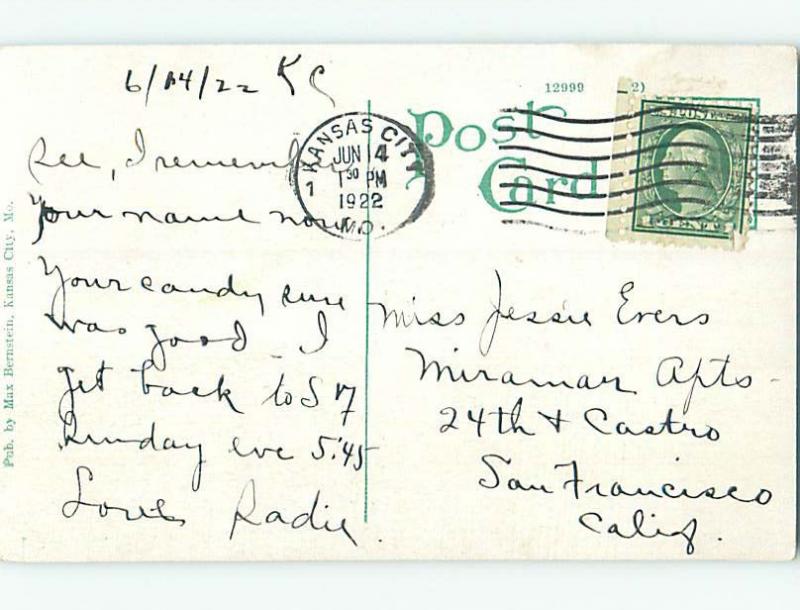 6/14/22 K C
See, I remember
Your name now.
Your candy sure
was good I
get back to S F
Sunday eve 5:45
Love Radie.
Pub. by Max Bernstein, Kansas City, Mo.
KANSAS CITY
JUN 14
1 30 PM
1922
MO.
1
12999
2)
Post
Card
Miss Jessie Evers
Miramar Apts-
24th + Castro
San Francisco
Calif.